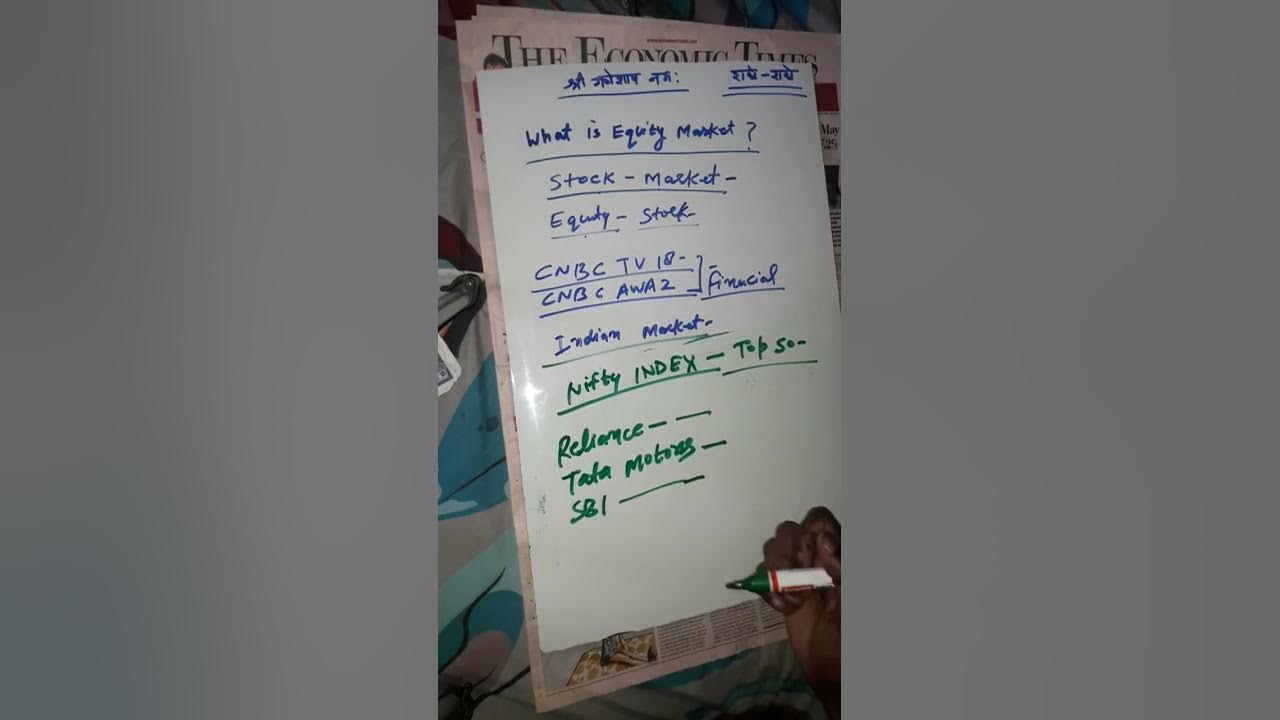 THE ECONOMIC TIMES
श्री गणेशाय नमः राधे-राधे
What is Equity Market ?
Stock - Market -
Equity - Stock -
CNBC TV 18 -
CNBC AWAZ
Finucial
Indian Market -
Nifty INDEX - Top 50 -
Reliance - -
Tata Motors -
SBI -
May